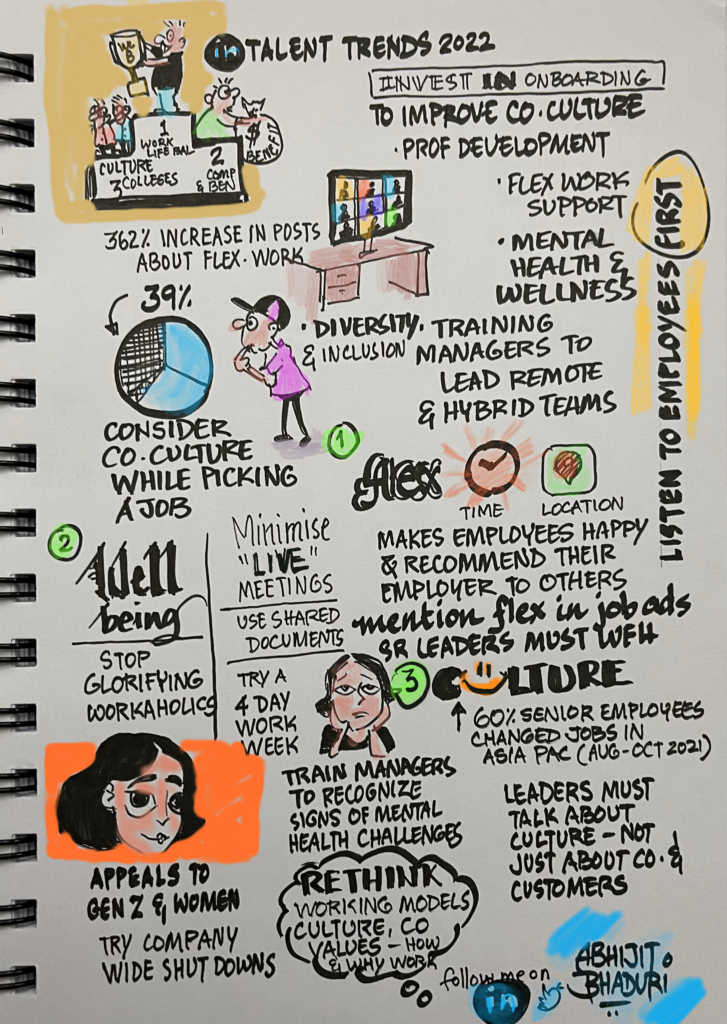 in TALENT TRENDS 2022
WL
B
1
WORK
LIFE BAL
2
COMP
& BEN
CULTURE
3 COLLEGES
$
BENEFIT
INVEST IN ONBOARDING
TO IMPROVE CO. CULTURE
· PROF DEVELOPMENT
· FLEX WORK
SUPPORT
· MENTAL
HEALTH &
WELLNESS
LISTEN TO EMPLOYEES FIRST
362% INCREASE IN POSTS
ABOUT FLEX. WORK
39%
CONSIDER
CO. CULTURE
WHILE PICKING
A JOB
· DIVERSITY
& INCLUSION
· TRAINING
MANAGERS TO
LEAD REMOTE
& HYBRID TEAMS
1
flex
TIME
LOCATION
MAKES EMPLOYEES HAPPY
& RECOMMEND THEIR
EMPLOYER TO OTHERS
mention flex in job ads
SR LEADERS MUST WFH
2
Well
being
STOP
GLORIFYING
WORKAHOLICS
Minimise
"LIVE"
MEETINGS
USE SHARED
DOCUMENTS
TRY A
4 DAY
WORK
WEEK
TRAIN MANAGERS
TO RECOGNIZE
SIGNS OF MENTAL
HEALTH CHALLENGES
3 CULTURE
60% SENIOR EMPLOYEES
CHANGED JOBS IN
ASIA PAC (AUG-OCT 2021)
LEADERS MUST
TALK ABOUT
CULTURE - NOT
JUST ABOUT CO. &
CUSTOMERS
APPEALS TO
GEN Z & WOMEN
TRY COMPANY
WIDE SHUT DOWNS
RETHINK
WORKING MODELS
CULTURE, CO
VALUES - HOW
& WHY WORK
follow me on
in
ABHIJIT
BHADURI